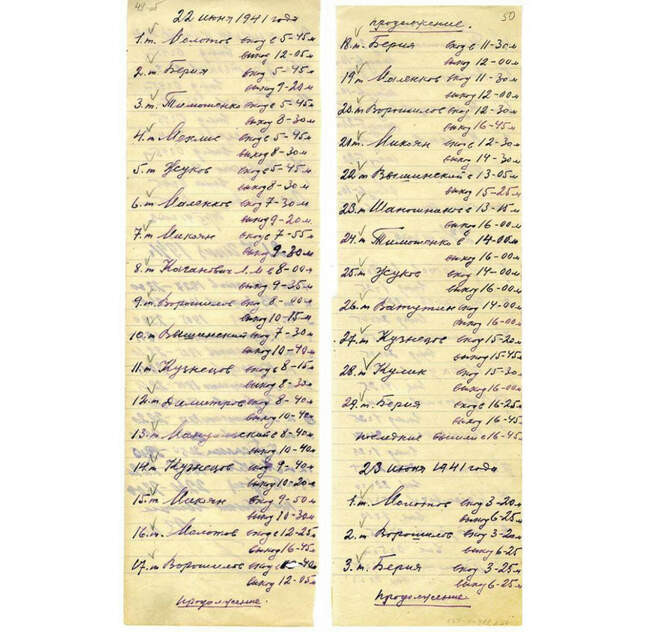 22 июня 1941 года
1. т. Молотов вход в 5-45м
выход 12-05м
2. т. Берия вход 5-45м
выход 9-20м
3. т. Тимошенко вход в 5-45м
выход 8-30м
4. т. Мехлис вход в 5-45м
выход 8-30м
5. т. Жуков вход в 5-45м
выход 8-30м
6. т. Маленков вход 7-30м
выход 9-20м
7. т. Микоян вход в 7-55м
выход 9-30м
8. т. Каганович Л.М в 8-00м
выход 9-35м
9. т. Ворошилов вход 8-00м
выход 10-15м
10. т. Вышинский вход 7-30м
выход 10-40м
11. т. Кузнецов вход в 8-15м
выход 8-30м
12. т. Димитров вход 8-40м
выход 10-40м
13. т. Мануильский в 8-40м
выход 10-40м
14. т. Кузнецов вход 9-40м
выход 10-20м
15. т. Микоян вход 9-50м
выход 10-30м
16. т. Молотов вход в 12-25м
выход 16-45м
17. т. Ворошилов вход в
выход 12-05м
продолжение
50
продолжение.
18. т. Берия вход в 11-30м
выход 12-00м
19. т. Маленков вход 11-30м
выход 12-00м
20. т. Ворошилов вход 12-30м
выход 16-45м
21. т. Микоян вход 12-30м
выход 14-30м
22. т. Вышинский в 13-05м
выход 15-25м
23. т. Шапошников в 13-15м
выход 16-00м
24. т. Тимошенко в 14-00м
выход 16-00м
25. т. Жуков вход 14-00м
выход 16-00м
26. т. Ватутин вход 14-00м
выход 16-00м
27. т. Кузнецов вход 15-20м
выход 15-45м
28. т. Кулик вход 15-30м
выход 16-00м
29. т. Берия вход в 16-25м
выход 16-45м
последние вышли в 16-45
23 июня 1941 года
1. т. Молотов вход 3-20м
выход 6-25м
2. т. Ворошилов вход 3-20м
выход 6-25
3. т. Берия вход 3-25м
выход 6-25м
продолжение